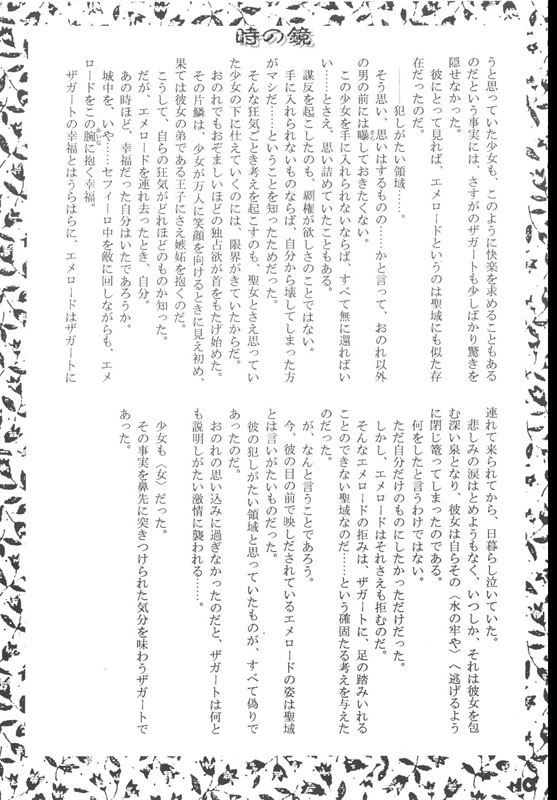 時の鏡
うと思っていた少女も、このように快楽を求めることもある
のだという事実には、さすがのザガートも少しばかり驚きを
隠せなかった。
彼にとって見れば、エメロードというのは聖域にも似た存
在だったのだ。
――犯しがたい領域……。
そう思い、思いはするものの……かと言って、おのれ以外
の男の前には曝しておきたくない。
さら
この少女を手に入れられないならば、すべて無に還ればい
い……とさえ、思い詰めていたこともある。
謀反を起こしたのも、覇権が欲しさのことではない。
手に入れられないものならば、自分から壊してしまった方
がマシだ……ということを知ったためだった。
そんな狂気ごとき考えを起こすのも、聖女とさえ思ってい
た少女の下に仕えていくのには、限界がきていたからだ。
おのれでもおぞましいほどの独占欲が首をもたげ始めた。
その片鱗は、少女が万人に笑顔を向けるときに見え初め、
果ては彼女の弟である王子にさえ嫉妬を抱くのだ。
こうして、自らの狂気がどれほどのものか知った。
だが、エメロードを連れ去ったとき、自分。
あの時ほど、幸福だった自分はいたであろうか。
城中を、いや……セフィーロ中を敵に回しながらも、エメ
ロードをこの腕に抱く幸福。
かいな
ザガートの幸福とはうらはらに、エメロードはザガートに
連れて来られてから、日暮らし泣いていた。
悲しみの涙はとめようもなく、いつしか、それは彼女を包
む深い泉となり、彼女は自らその〈水の牢や〉へ逃げるよう
に閉じ篭ってしまったのである。
何をしたと言うわけではない。
ただ自分だけのものにしたかっただけだった。
しかし、エメロードはそれさえも拒むのだ。
そんなエメロードの拒みは、ザガートに、足の踏みいれる
ことのできない聖域なのだ……という確固たる考えを与えた
のだった。
が、なんと言うことであろう。
今、彼の目の前で映しだされているエメロードの姿は聖域
とは言いがたいものだった。
彼の犯しがたい領域と思っていたものが、すべて偽りで
あったのだ。
おのれの思い込みに過ぎなかったのだと、ザガートは何と
も説明しがたい激情に襲われる……。
少女も〈女〉だった。
その事実を鼻先に突きつけられた気分を味わうザガートで
あった。